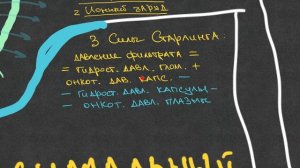 2 Ионный заряд
3 Силы Старлинга:
давление фильтрата =
= гидрост. давл. глом. +
онкот. дав. капс. -
- гидрост. давл. капсулы -
- онкот. давл. плазмы